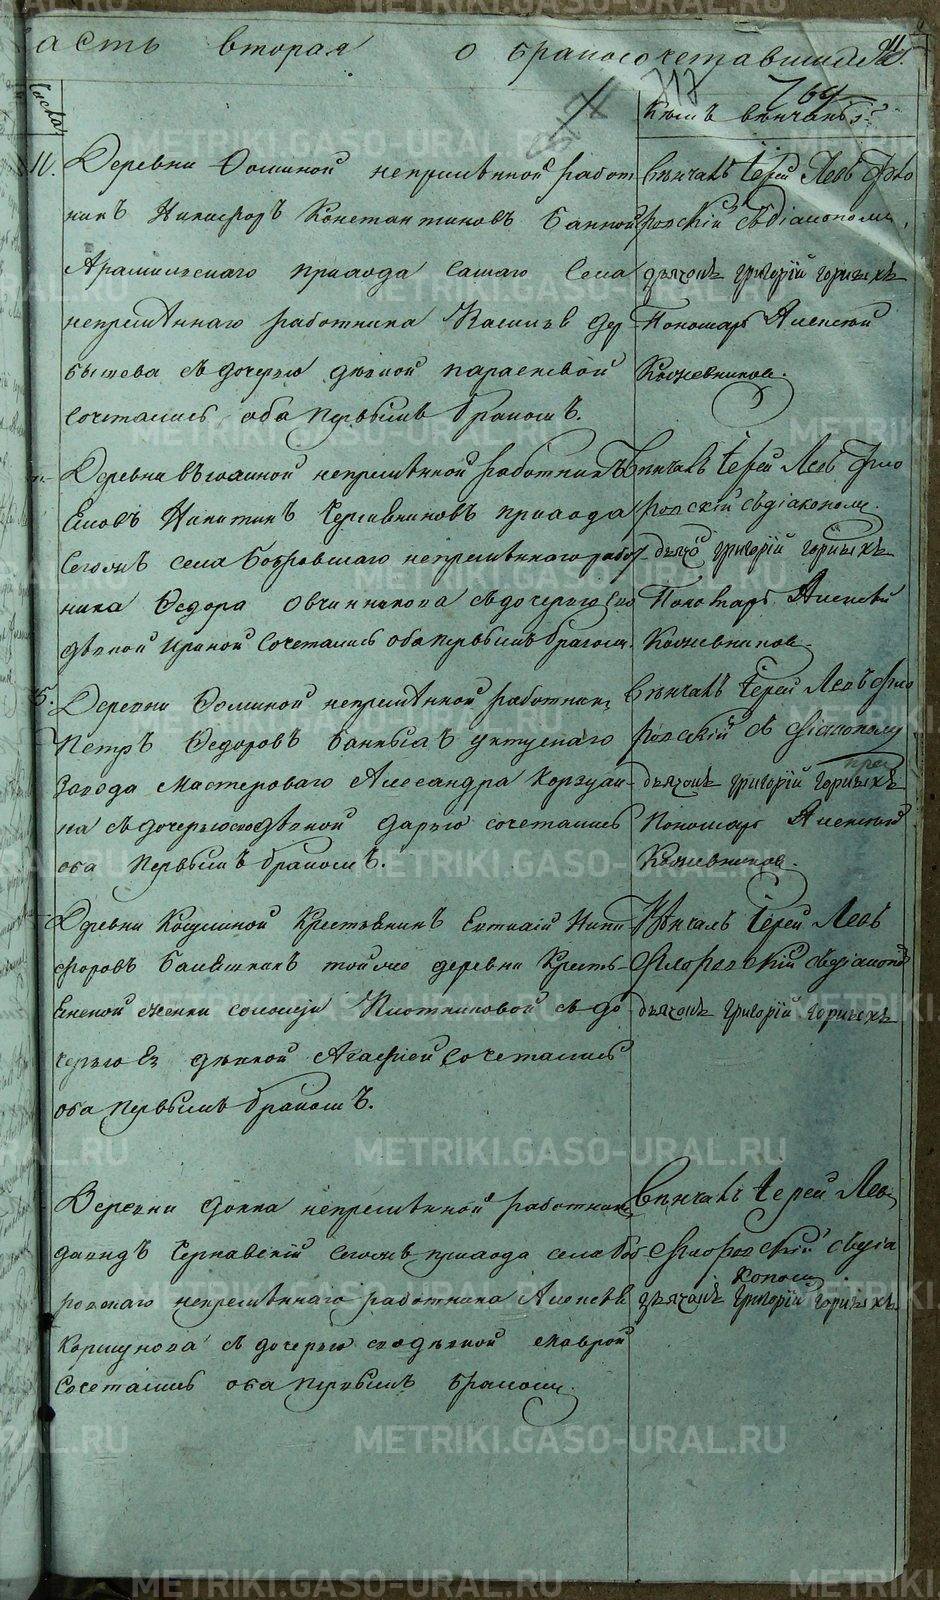 асть вторая о бракосочетавшихся
717
764
Кѣмъ вѣнчаны?
Числа
11. Деревни Фоминой непремѣнной работ
никъ Никифоръ Константиновъ Банной
Арамильскаго прихода самаго села
непремѣннаго работника Василья Дер
бышева съ дочерью дѣвкой Параскевой
сочетались оба первымъ бракомъ.
Вѣнчалъ Іерей Левъ Фло
ровскій съ діакономъ,
дьячокъ Григорій Горныхъ
Пономарь Алексѣй
Кожевниковъ.
Деревни непремѣнной работникъ
Никитинъ прихода
сегожъ села Бобровскаго непремѣннаго работ
ника Федора Овчинникова съ дочерью ево
дѣвкой Ириной сочетались оба первымъ бракомъ.
Вѣнчалъ Іерей Левъ Фло
ровскій съ діакономъ.
дьячо Григорій Горныхъ
Пономарь Алексѣй
Кожевниковъ.
5. Деревни Фоминой непремѣнной работникъ
Петръ Федоровъ Банныхъ Уктускаго
завода Мастероваго Александра Корзухи
на съ дочерью ево дѣвкой Дарью сочетались
оба первымъ бракомъ.
Вѣнчалъ Іерей Левъ Фло
ровскій съ діакономъ
дьячокъ Григорій Горныхъ
Пономарь Алексѣй
Кожевниковъ.
Деревни Косулиной Крестьянинъ Евтихій Ники
форовъ той же деревни Кресть
янской женки Плотниковой съ до
черью Ея дѣвкой Агафіей сочетались
оба первымъ бракомъ.
Вѣнчалъ Іерей Левъ
Флоровскій съ діаконо
дьячокъ Григорій Горныхъ
Деревни непремѣнной работникъ
Давидъ Чернавскій сегожъ прихода села Боб
ровскаго непремѣннаго работника Алексѣя
Коршунова съ дочерью ево дѣвкой Маврой
сочетались оба первымъ бракомъ.
Вѣнчалъ Іерей Левъ
Флоровскій съ діа
кономъ
дьячокъ Григорій Горныхъ
METRIKI.GASO-URAL.RU